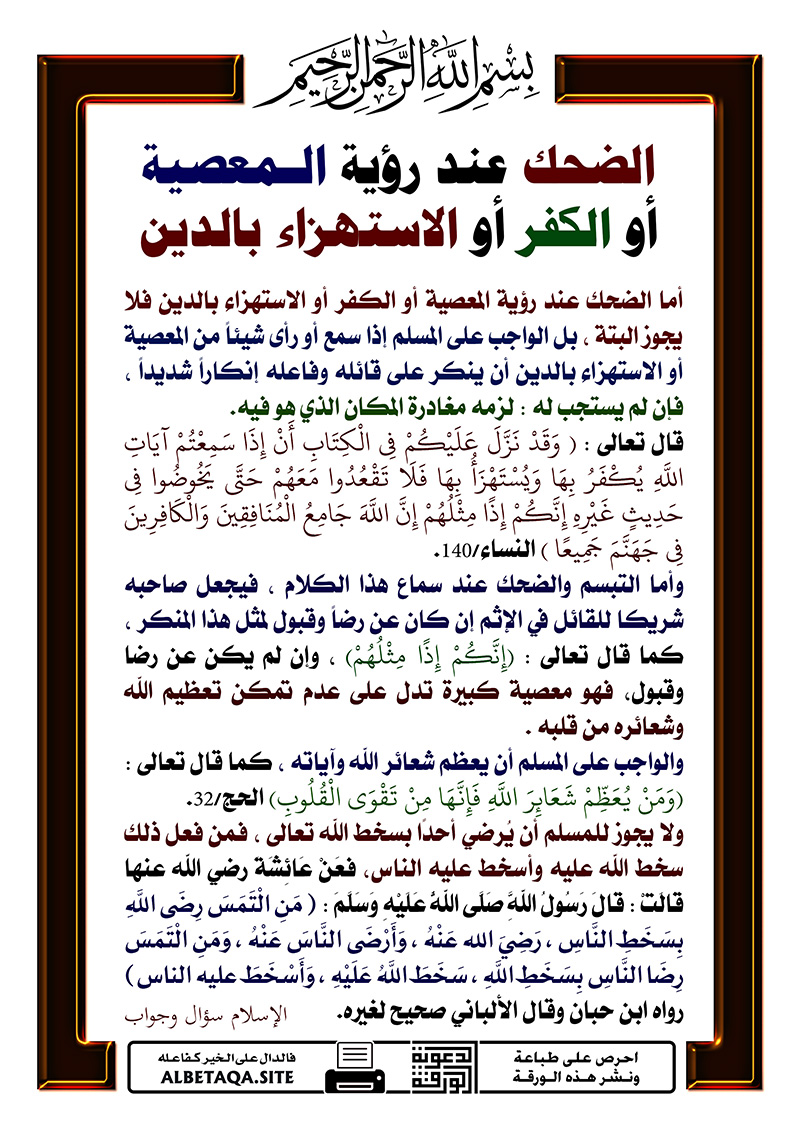 بِسْمِ اللَّهِ الرَّحْمَنِ الرَّحِيمِ
الضحك عند رؤية الـمعصية
أو الكفر أو الاستهزاء بالدين
أما الضحك عند رؤية المعصية أو الكفر أو الاستهزاء بالدين فلا
يجوز البتة ، بل الواجب على المسلم إذا سمع أو رأى شيئاً من المعصية
أو الاستهزاء بالدين أن ينكر على قائله وفاعله إنكاراً شديداً ،
فإن لم يستجب له : لزمه مغادرة المكان الذي هو فيه.
قال تعالى : ( وَقَدْ نَزَّلَ عَلَيْكُمْ فِي الْكِتَابِ أَنْ إِذَا سَمِعْتُمْ آيَاتِ
اللَّهِ يُكْفَرُ بِهَا وَيُسْتَهْزَأُ بِهَا فَلَا تَقْعُدُوا مَعَهُمْ حَتَّى يَخُوضُوا فِي
حَدِيثٍ غَيْرِهِ إِنَّكُمْ إِذًا مِثْلُهُمْ إِنَّ اللَّهَ جَامِعُ الْمُنَافِقِينَ وَالْكَافِرِينَ
فِي جَهَنَّمَ جَمِيعًا ) النساء/140.
وأما التبسم والضحك عند سماع هذا الكلام ، فيجعل صاحبه
شريكا للقائل في الإثم إن كان عن رضاً وقبول لمثل هذا المنكر ،
كما قال تعالى : (إِنَّكُمْ إِذًا مِثْلُهُمْ) ، وإن لم يكن عن رضا
وقبول، فهو معصية كبيرة تدل على عدم تمكن تعظيم الله
وشعائره من قلبه .
والواجب على المسلم أن يعظم شعائر الله وآياته ، كما قال تعالى :
(وَمَنْ يُعَظِّمْ شَعَائِرَ اللَّهِ فَإِنَّهَا مِنْ تَقْوَى الْقُلُوبِ) الحج/32.
ولا يجوز للمسلم أن يُرضي أحدًا بسخط الله تعالى ، فمن فعل ذلك
سخط الله عليه وأسخط عليه الناس، فعَنْ عَائِشَة رضي الله عنها
قالَتْ : قالَ رَسُولُ اللَّهِ صَلَّى اللهُ عَلَيْهِ وَسَلَّمَ : ( مَنِ الْتَمَسَ رِضَى اللَّهِ
بِسَخَطِ النَّاسِ ، رَضِيَ الله عَنْهُ ، وَأَرْضَى النَّاسَ عَنْهُ ، وَمَنِ الْتَمَسَ
رِضَا النَّاسِ بِسَخَطِ اللَّهِ ، سَخَطَ اللَّهُ عَلَيْهِ ، وَأَسْخَطَ عليه الناس )
رواه ابن حبان وقال الألباني صحيح لغيره. الإسلام سؤال وجواب
احرص على طباعة
ونشر هذه الورقة
الورقة الدعوية
فالدال على الخير كفاعله
ALBETAQA.SITE